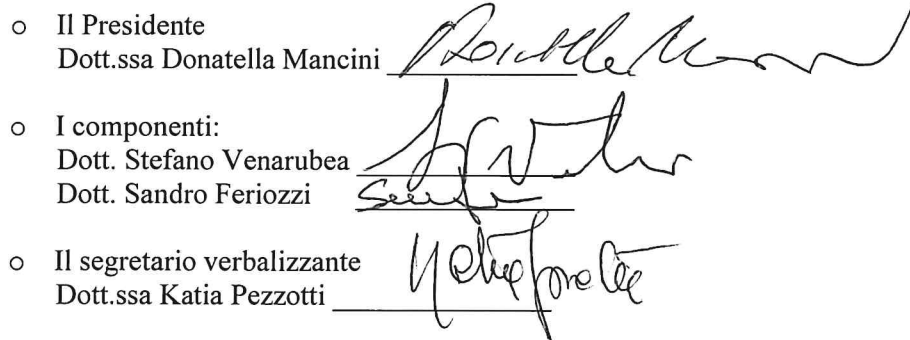 ○ Il Presidente
Dott.ssa Donatella Mancini
○ I componenti:
Dott. Stefano Venarubea
Dott. Sandro Feriozzi
○ Il segretario verbalizzante
Dott.ssa Katia Pezzotti